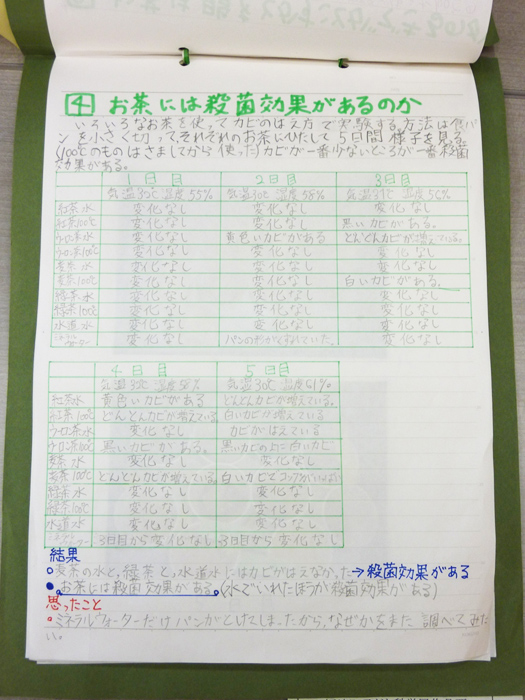 4 お茶には殺菌効果があるのか
いろいろなお茶を使ってカビのはえ方で実験する方法は食パ
ンを小さく切って、それぞれのお茶にひたして5日間様子を見る
(100℃のものはさましてから使った)カビが一番少ないところが一番殺菌
効果がある。
1日目 2日目 3日目
気温30℃ 湿度55% 気温30℃ 湿度58% 気温31℃ 湿度56%
紅茶水 変化なし 変化なし 変化なし
紅茶100℃ 変化なし 変化なし 黒いカビがある。
ウーロン茶水 変化なし 黄色いカビがある どんどんカビが増えている。
ウーロン茶100℃ 変化なし 変化なし 変化なし
麦茶水 変化なし 変化なし 変化なし
麦茶100℃ 変化なし 変化なし 白いカビがある。
緑茶水 変化なし 変化なし 変化なし
緑茶100℃ 変化なし 変化なし 変化なし
水道水 変化なし 変化なし 変化なし
変化なし パンの形がくずれていた。
4日目 5日目
気温30℃ 湿度58% 気温30℃ 湿度61%
紅茶水 黄色いカビがある どんどんカビが増えている。
紅茶100℃ どんどんカビが増えている 白いカビが増えている
ウーロン茶水 変化なし カビがはえている
ウーロン茶100℃ 黒いカビがある。 黒いカビの上に白いカビ
麦茶水 変化なし 変化なし
麦茶100℃ どんどんカビが増えている 白いカビで
緑茶水 変化なし 変化なし
緑茶100℃ 変化なし 変化なし
水道水 変化なし 変化なし
3日目から変化なし 3日目から変化なし
結果
○麦茶の水と,緑茶と,水道水にはカビがはえなかった→殺菌効果がある
●お茶には殺菌効果がある。(水でいれたほうが殺菌効果がある)
思ったこと
○ミネラルウォーターだけパンがとけてしまったから,なぜかをまた調べてみた
い。